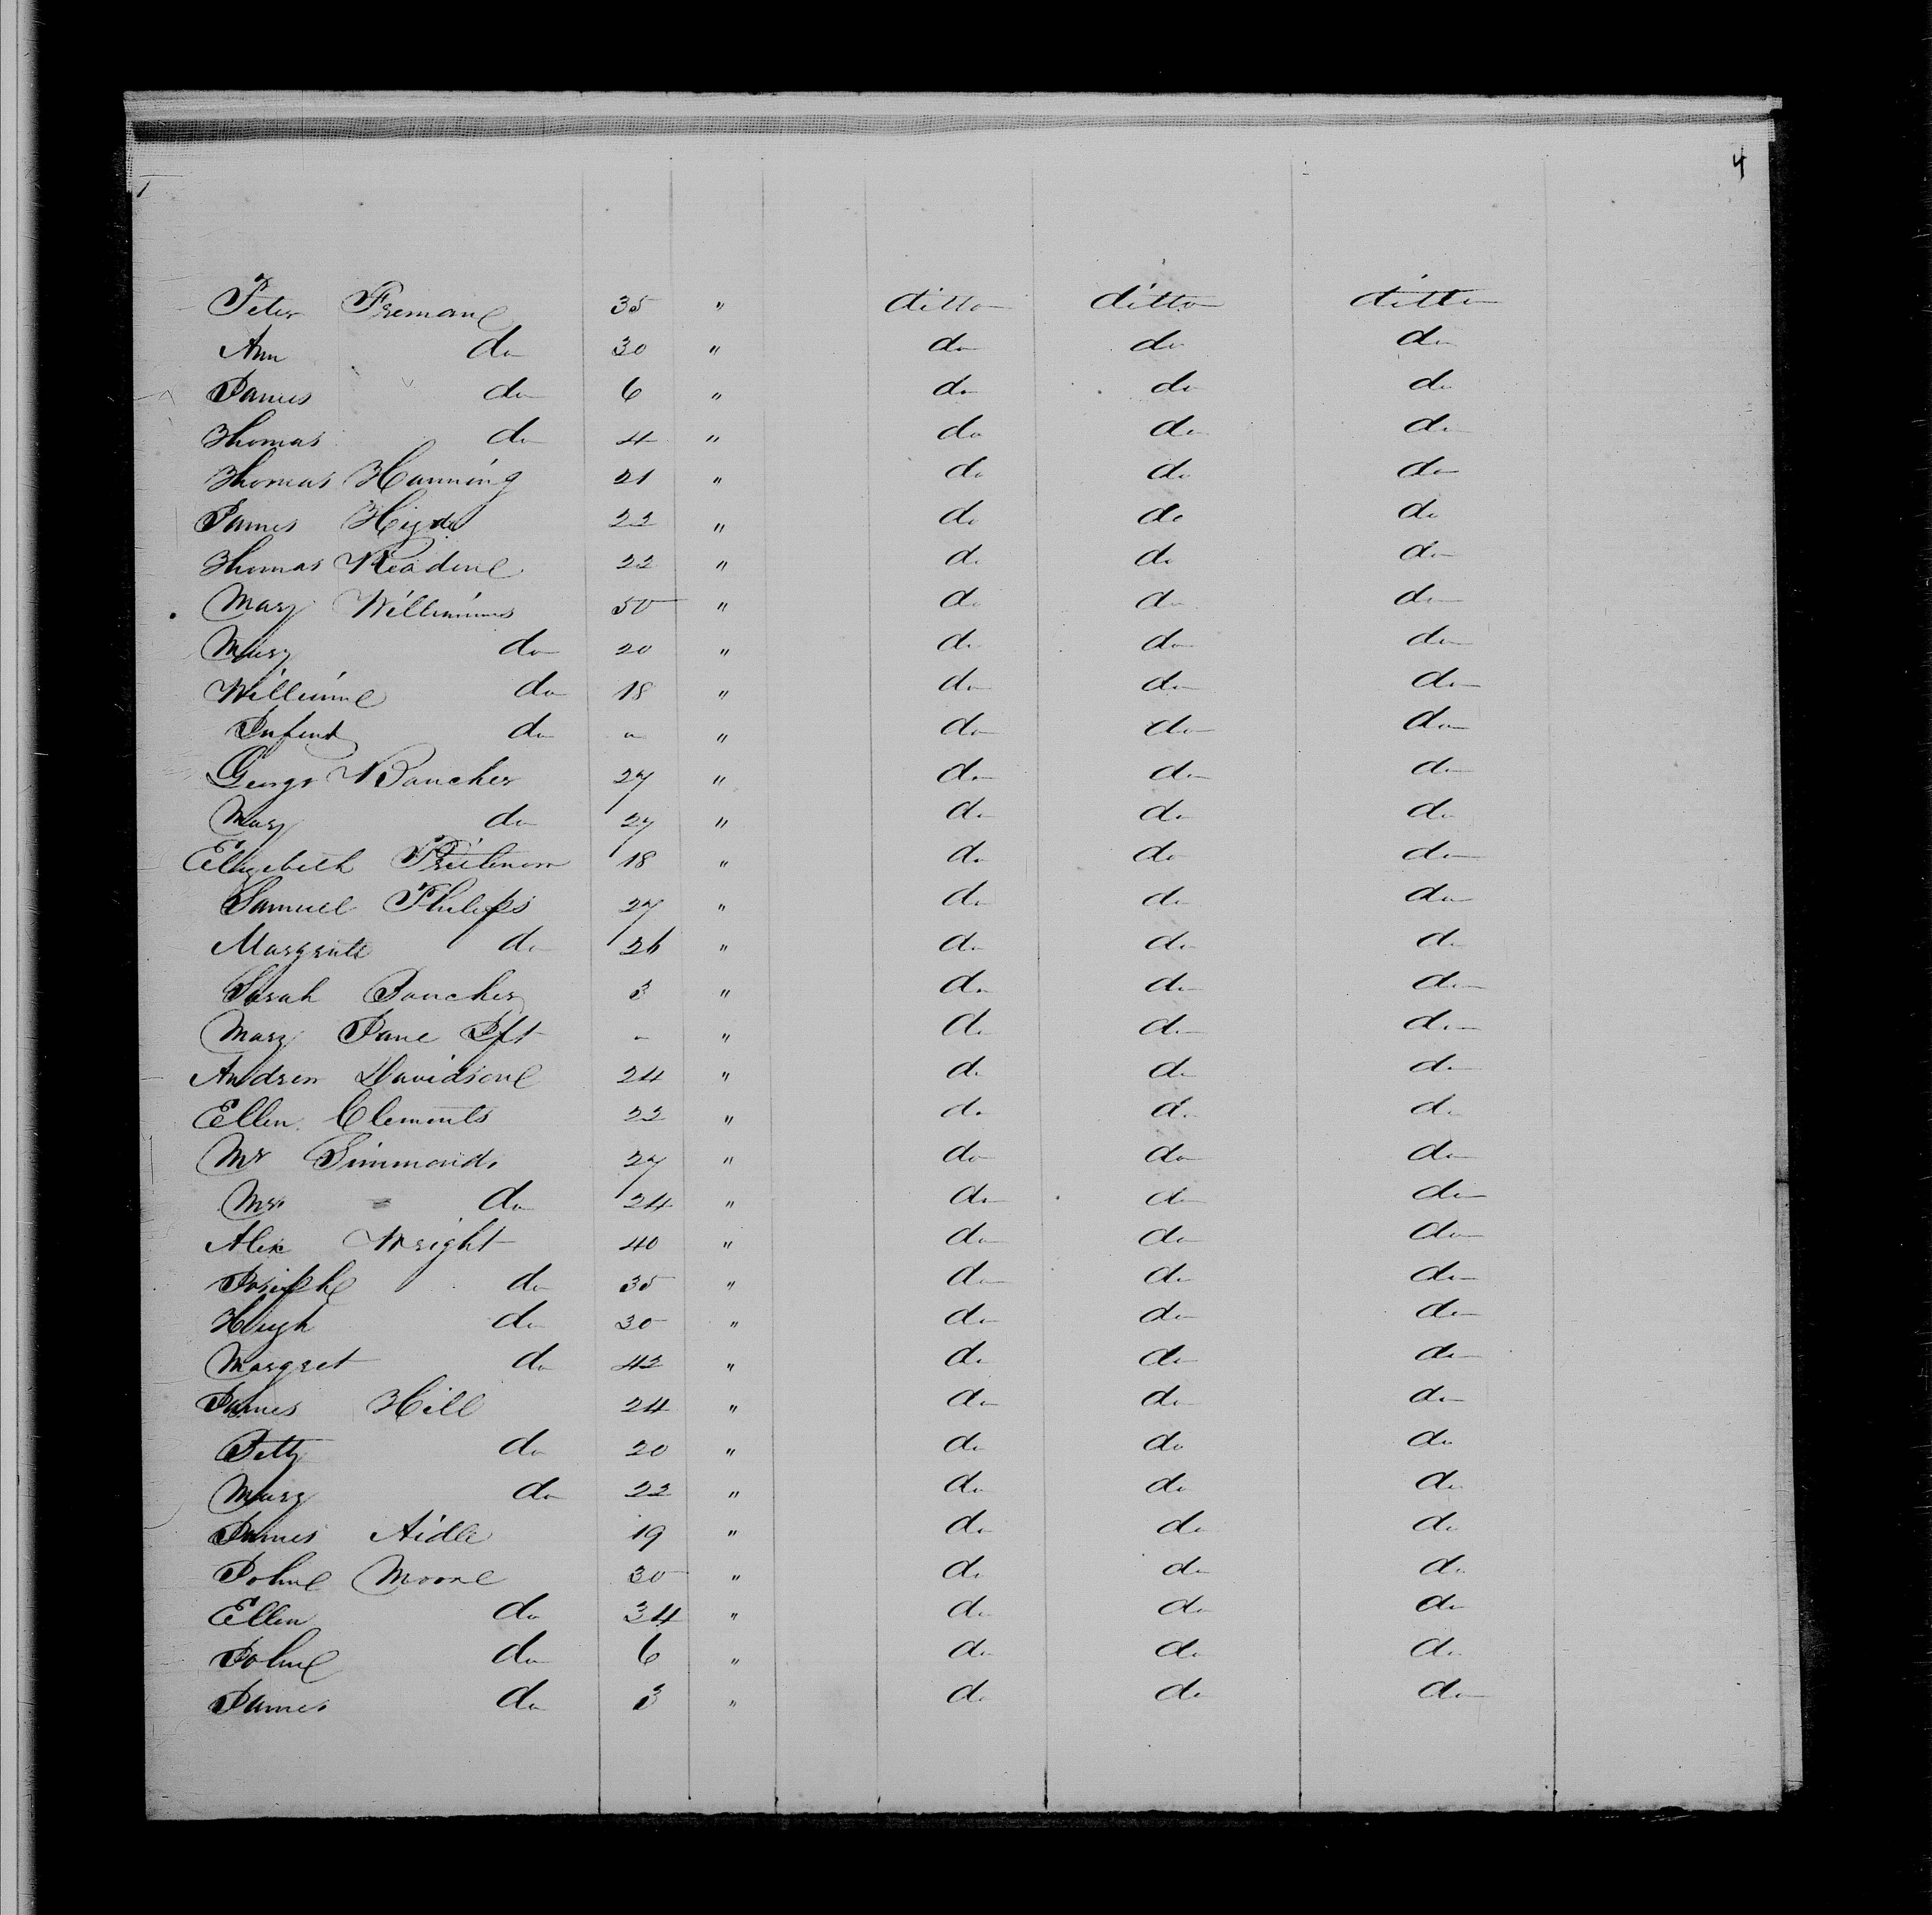 4
Peter Fremane 35 " ditto ditto ditto
Ann do 30 " do do do
James do 6 " do do do
Thomas do 4 " do do do
Thomas Hanning 21 " do do do
James 22 " do do do
Thomas Readone 22 " do do do
Mary Williams 50 " do do do
Mary do 20 " do do do
William do 18 " do do do
Infant do " do do do
George Boucher 27 " do do do
Mary do 27 " do do do
Elizebeth 18 " do do do
Samuel Philips 27 " do do do
Margrett do 26 " do do do
Sarah Boucher 3 " do do do
Mary Jane Ift - " do do do
Andrew Davidson 24 " do do do
Ellen Clements 22 " do do do
Mr Simmonds 27 " do do do
Mrs do 24 " do do do
Alex Wright 40 " do do do
Joseph do 35 " do do do
Hugh do 30 " do do do
Margret do 42 " do do do
James Hill 24 " do do do
do 20 " do do do
Mary do 22 " do do do
James Aidle 19 " do do do
John Moore 30 " do do do
Ellen do 34 " do do do
John do 6 " do do do
James do 3 " do do do